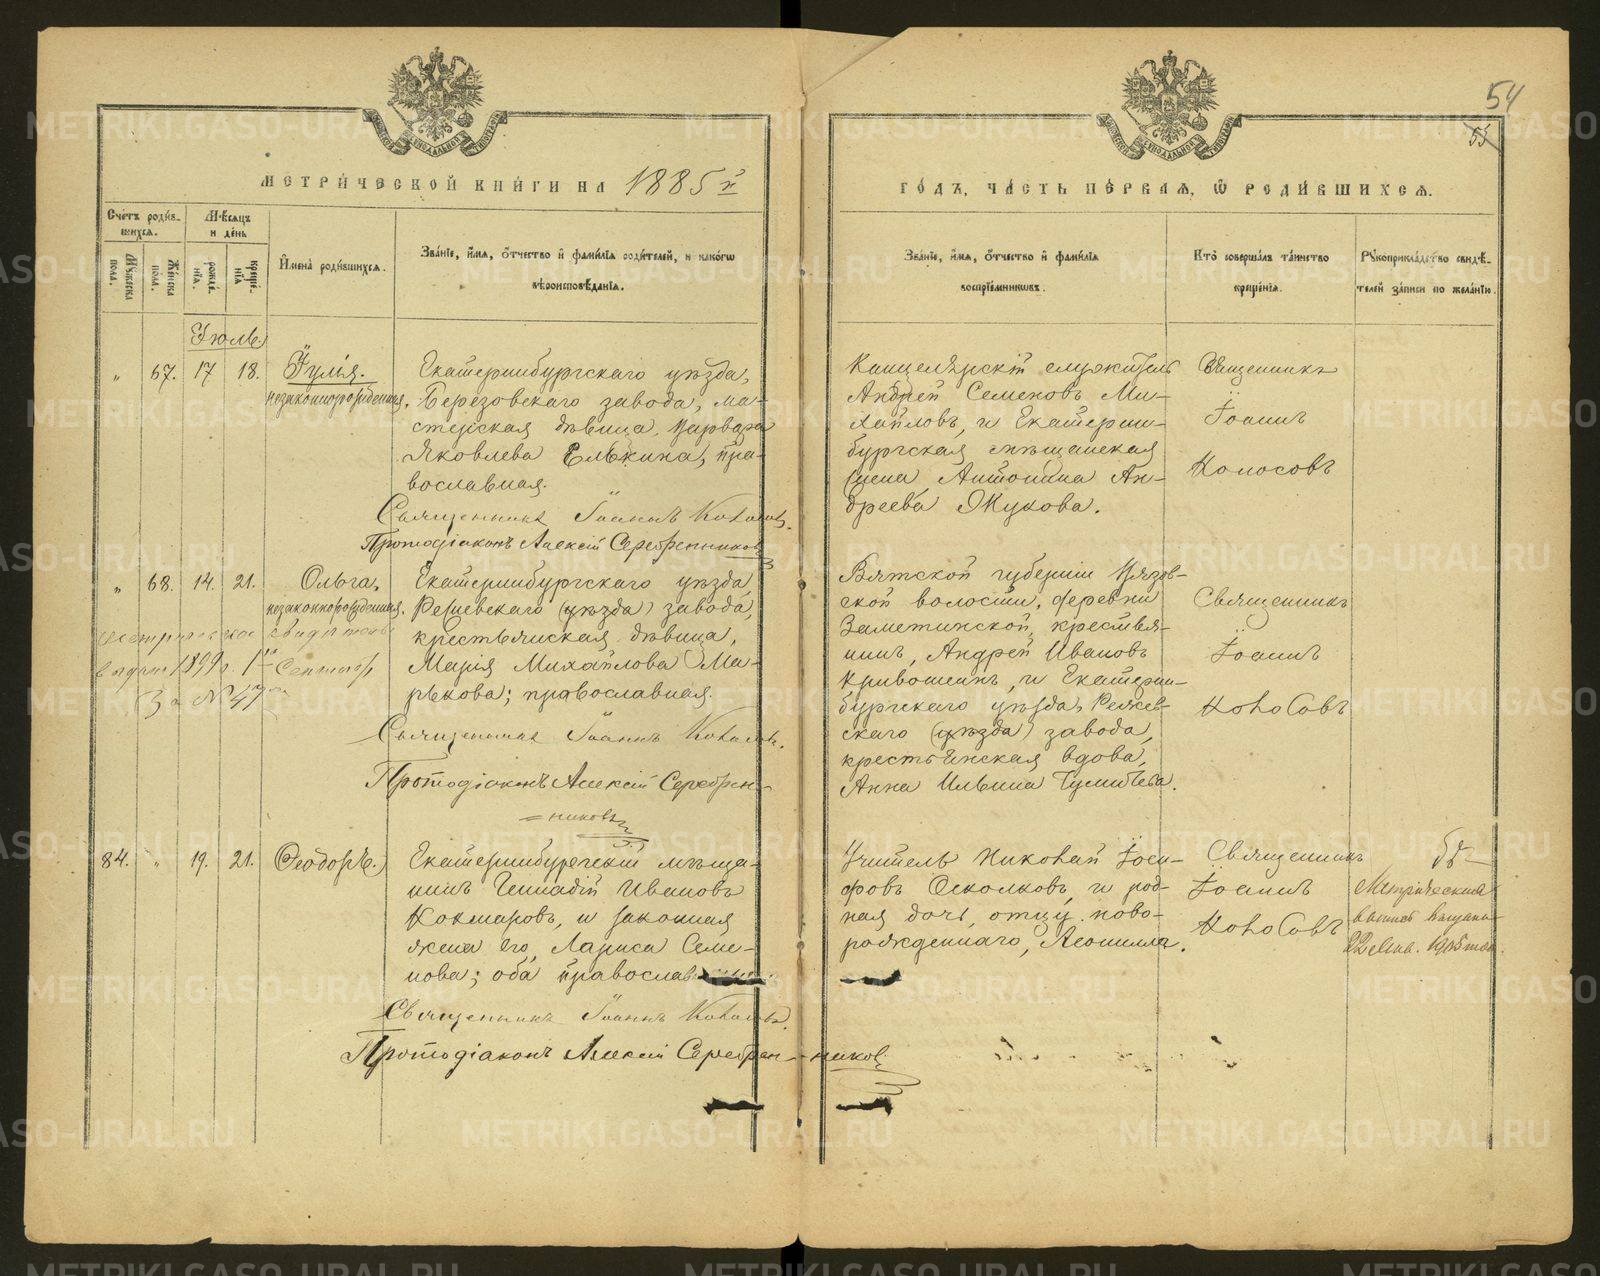 54
55
МЕТРИЧЕСКОЙ КНИГИ НА 1885й
ГОДЪ, ЧАСТЬ ПЕРВАЯ, Ѡ РОДИВШИХСЯ.
Счетъ родив-
шихся.
Мѣсяцъ
и день
Мужеска
пола.
Женска
пола.
рожде-
нія.
креще-
нія
Имена родившихся.
Званіе, имя, отчество и фамилія родителей, и какого
вѣроисповѣданія.
Званіе, имя, отчество и фамилія
воспріемниковъ.
Кто совершалъ таинство
крещенія.
Рукоприкладство свидѣ-
телей записи по желанію.
Іюль
" 67. 17 18. Іулія.
незаконнорожденная.
Екатеринбургскаго уѣзда,
Березовскаго завода, ма-
стерская дѣвица, Варвара
Яковлева Елькина, пра-
вославная.
Священникъ Іоаннъ
Протодіаконъ Алексій Серебренниковъ
Канцелярскій служитель
Андрей Семеновъ Ми-
хайловъ, и Екатерин-
бургская мѣщанская
жена Антонина Ан-
дреева Жукова.
Священникъ
Іоаннъ
" 68. 14. 21. Ольга,
незаконнорожденная.
Екатеринбургскаго уѣзда
Режевскаго (уѣзда) завода,
крестьянская дѣвица,
Марія Михайлова Ма-
рькова; православная.
свидѣтель
1899 г. 1го Сентябр
За № 47
Священникъ Іоаннъ
Протодіаконъ Алексій Серебрен-
никовъ
Вятской губерніи
ской волости, деревни
Заметинской, крестья-
нинъ, Андрей Ивановъ
Кривошеинъ, и Екатерин-
бургскаго уѣзда, Режев-
скаго (уѣзда) завода,
крестьянская вдова,
Анна Ильина
Священникъ
Іоаннъ
84. " 19. 21. Ѳеодоръ.
Екатеринбургскій мѣща-
нинъ Геннадій Ивановъ
Кокшаровъ, и законная
жена его, Лариса Семе-
нова; оба православ
Священникъ Іоаннъ
Протодіаконъ Алексій Серебрен-никовъ
Учитель Николай Іоси-
фовъ Осколковъ, и род-
ная дочь, отцу ново-
рожденнаго, Леонилла.
Священникъ
Іоаннъ
Метрическая
выпись выдана
22 Янв. 1905 год.
METRIKI.GASO-URAL.RU